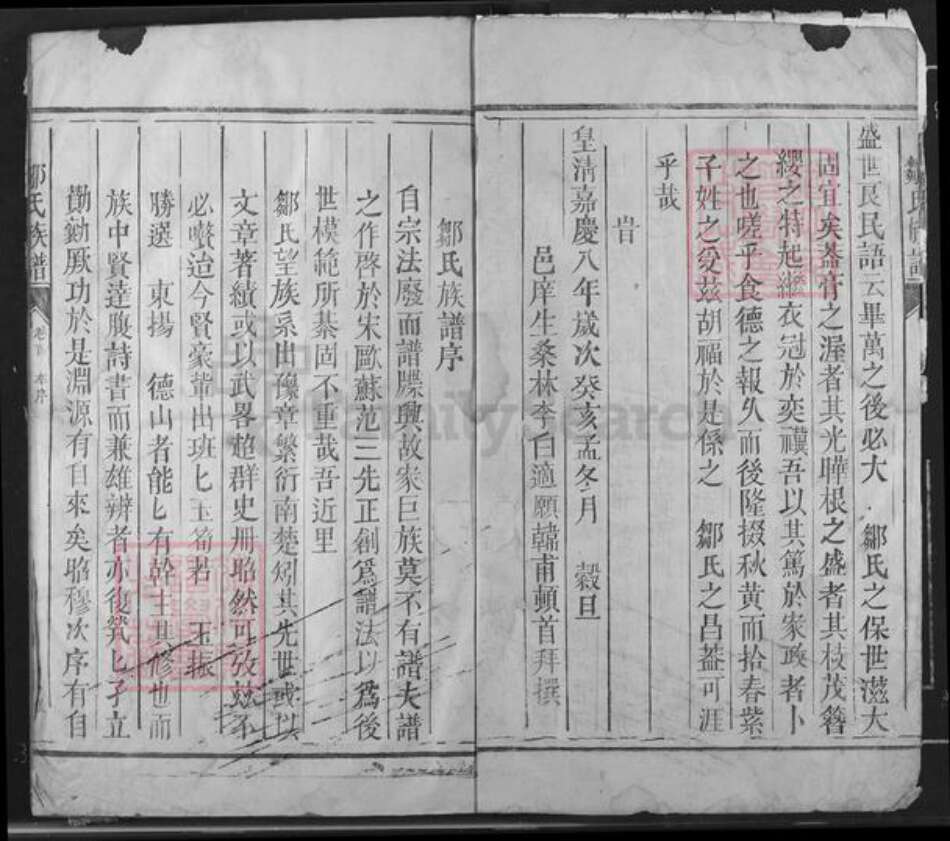 盛世良民語云畢萬之後必大 鄒氏之保世滋大
固宜矣葢膏之渥者其光曄根之盛者其枝茂簪
纓之特起濟衣冠於奕禩吾以其篤於家政者卜
之也嗟乎食德之報久而後隆掇秋黄而拾春紫
子姓之受茲胡福於是係之 鄒氏之昌葢可涯
乎哉
旹
皇清嘉慶八年歲次癸亥孟冬月 穀旦
邑庠生桑林李白適願韓甫頓首拜撰
鄒氏族譜序
自宗法廢而譜牒興故家巨族莫不有譜夫譜
之作啓於宋歐蘇范三先正創爲譜法以爲後
世模範所綦固不重哉吾近里
鄒氏望族系出豫章繁衍南楚矧其先世或以
文章著績或以武畧超群史冊昭然可攷茲不
必贅迨今賢豪輩出班匕玉筍若 玉振
勝選 東揚 德山者能匕有幹主其修也而
族中賢達腹詩書而兼雄辨者亦復煢匕孑立
勷勷厥功於是淵源有自來矣昭穆次序有自
鄒氏族譜
卷首